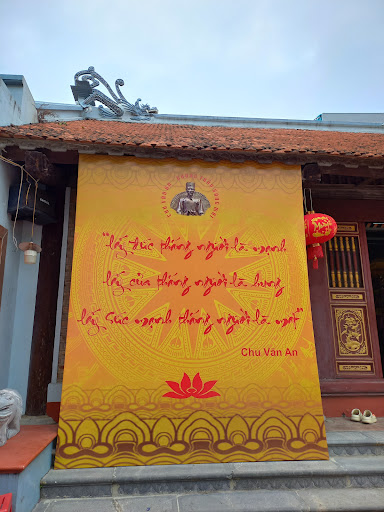 "lấy đức thắng người là mạnh
lấy của thắng người là hung
lấy sức mạnh thắng người là mạt"
Chu Văn An